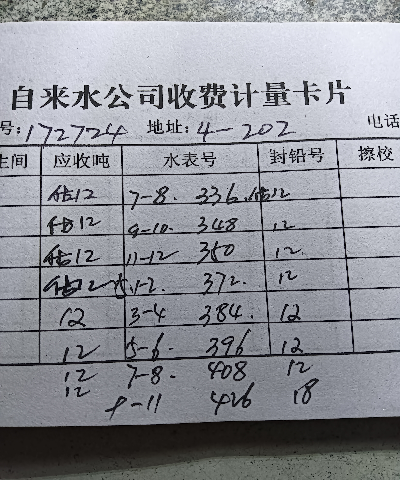 自来水公司收费计量卡片
号:172724 地址:4-202 电话
生间 应收吨 水表号 封铅号 擦校
估12 7-8. 336. 估12
估12 9-10. 348 12
估12 11-12 360 12.
估12 1-2. 372. 12
12 3-4 384. 12
12 5-6. 396 12
12 7-8. 408 12
12 9-11 426 18